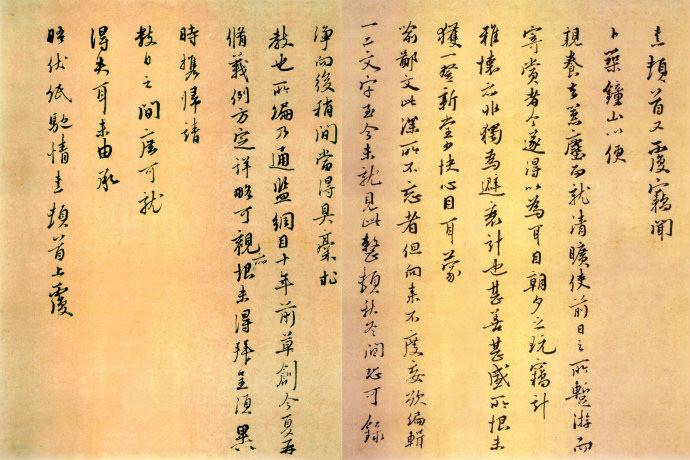 熹頓首又覆竊聞
卜築鍾山以便
親養去囂塵而就清曠使前日之所暫游而
寄賞者今遂得以為耳目朝夕之玩竊計
雅懷亦非獨為避衰計也甚善甚盛所恨未
獲一登新堂少快心目耳蒙
喻鄙文此深所不忘者但向來不度妄欲編輯
一二文字至今未就見此整頓秋冬間恐可錄
淨向後稍間當得具稾求
教也所編乃通鑑綱目十年前草創今夏再
脩義例方定詳略可觀亦恨未得拜呈須異
時攜歸請
數日之間庶可就
得失耳未由承
晤伏紙馳情熹頓首上覆